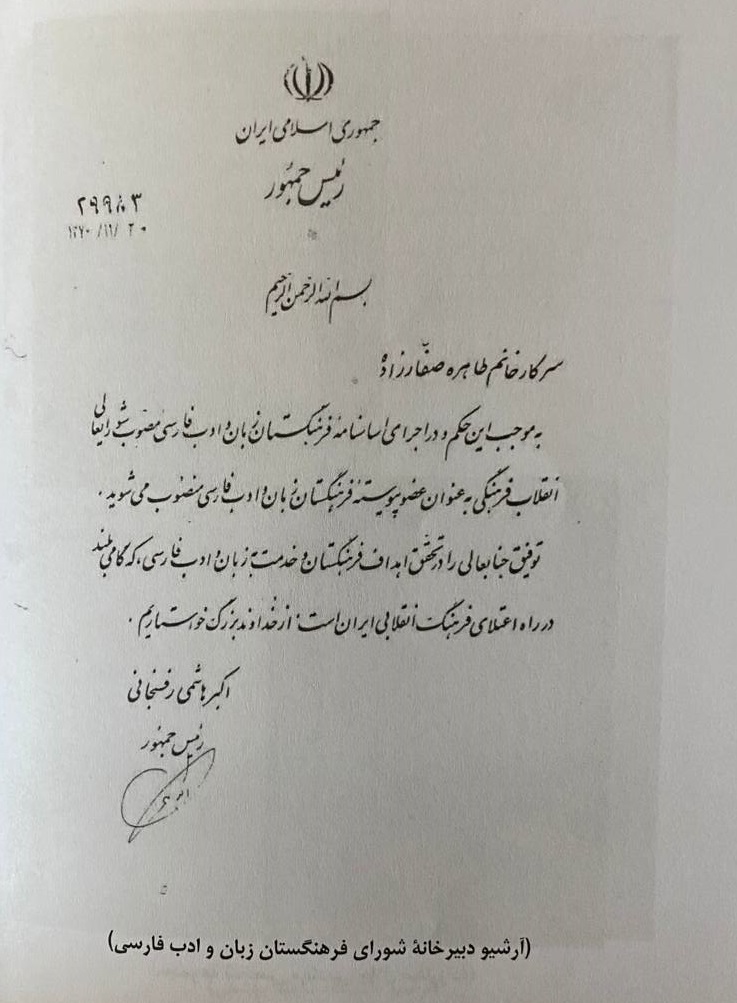 جمهوری اسلامی ایران
رئیس جمهور
۲۹۹۸۳
۱۳۷۰/۱۱/۲۰
بسم الله الرحمن الرحیم
سرکار خانم طاهره صفّارزاده
به موجب این حکم و در اجرای اساسنامهٔ فرهنگستان زبان و ادب فارسی مصوّب شورایعالی
انقلاب فرهنگی به عنوان عضو پیوستهٔ فرهنگستان زبان و ادب فارسی منصوب می‌شوید.
توفیق جنابعالی را در تحقّق اهداف فرهنگستان و خدمت به زبان و ادب فارسی، که گامی بلند
در راه اعتلای فرهنگ انقلابی ایران است، از خداوند بزرگ خواستاریم.
اکبر هاشمی رفسنجانی
رئیس جمهور
(آرشیو دبیرخانهٔ شورای فرهنگستان زبان و ادب فارسی)